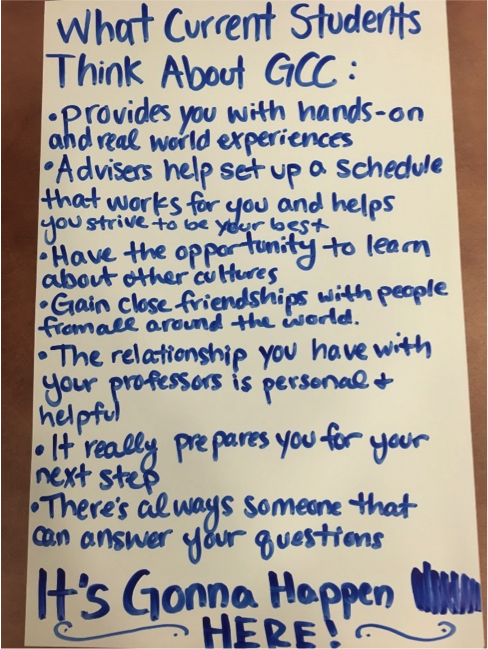 What Current Students
Think About GCC:
•provides you with hands-on
and real world experiences
•Advisers help set up a schedule
that works for you and helps
you strive to be your best
•Have the opportunity to learn
about other cultures
•Gain close friendships with people
from all around the world.
•The relationship you have with
your professors is personal +
helpful
•It really prepares you for your
next step
•There's always someone that
can answer your questions
It's Gonna Happen
HERE!